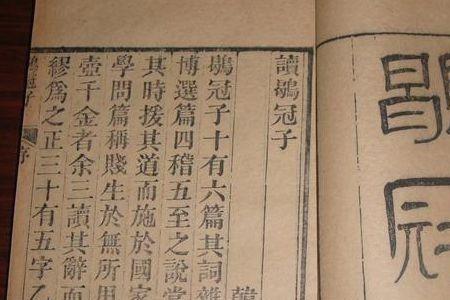 讀鶡冠子
鶡冠子十有六篇其詞雜
博選篇四稽五至之說當
其時援其道而施於國家
學問篇稱賤生於無所用
壺千金者余三讀其辭而
繆爲之正三十有五字乙
鶡冠子 序